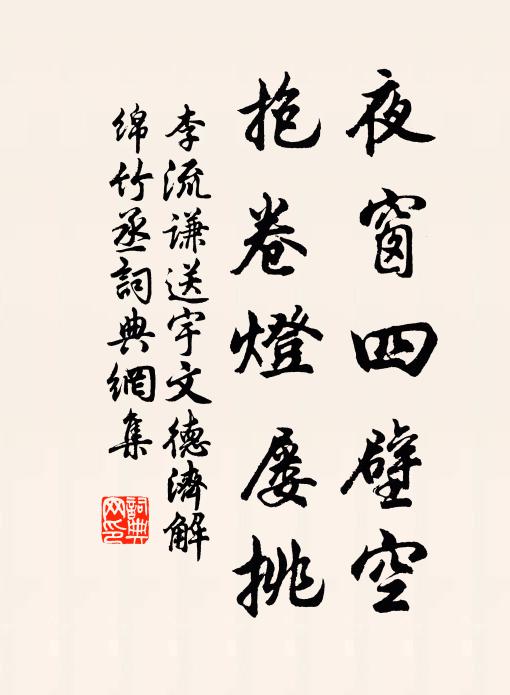 夜窗四壁空
抱卷燈屢挑
李流謙送宇文德濟解
綿竹丞詞典網集
詞典网印